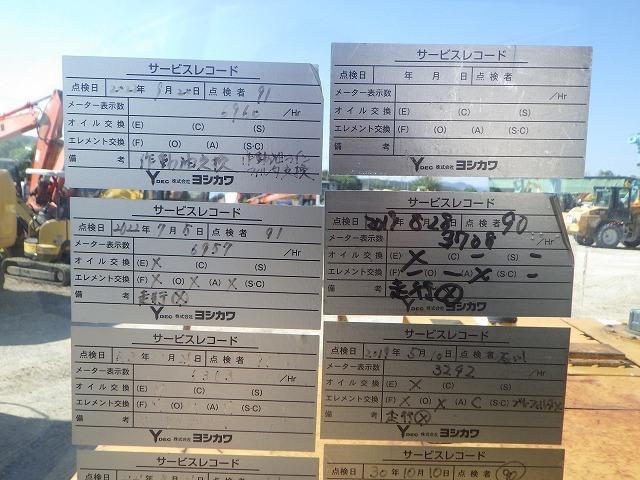 サービスレコード
点検日 2022年9月20日 点検者 91
メーター表示数 6960 /Hr
オイル交換 (E) (C) (S)
エレメント交換 (F) (O) (A) (S·C)
備考 作動油交換 作動油ライン フィルター交換
YDEC 株式会社 ヨシカワ
サービスレコード
点検日 年 月 日 点検者
メーター表示数 /Hr
オイル交換 (E) (C) (S)
エレメント交換 (F) (O) (A) (S·C)
備考
YDEC 株式会社 ヨシカワ
サービスレコード
点検日 2022年7月5日 点検者 91
メーター表示数 6957 /Hr
オイル交換 (E) X (C) (S)
エレメント交換 (F) X (O) X (A) X (S·C)
備考 走行X
YDEC 株式会社 ヨシカワ
2019 8.28 点検者 90
メーター表示数 3708 /Hr
オイル交換 (E) X (C) - (S) -
エレメント交換 (F) - (O) - (A) X (S·C) -
備考 走行X
YDEC 株式会社 ヨシカワ
サービスレコード
点検日 年 月 日 点検者
メーター表示数 /Hr
オイル交換 (E) (C) (S)
エレメント交換 (F) (O) (A) (S·C)
備考
YDEC 株式会社 ヨシカワ
サービスレコード
点検日 2019年5月10日 点検者
メーター表示数 3292 /Hr
オイル交換 (E) X (C) (S)
エレメント交換 (F) X (O) X (A) C (S·C)
備考 走行X
YDEC 株式会社 ヨシカワ
サービスレコード
点検日 年 月 日 点検者
サービスレコード
点検日 30年10月10日 点検者 90